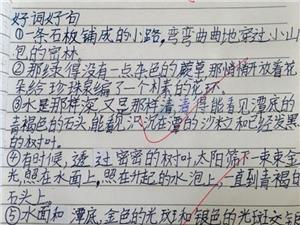 好词好句
①一条石板铺成的小路,弯弯曲曲地穿过小山
包的密林。
②那绿得没有一点杂色的蕨草,那悄悄开放着花
朵给珍珠泉编了一个彩的花环。
③水是那样深又是那样清,清得能看见潭底的
青褐色的石头,能看见沉在潭的沙粒和已经发黑
的树叶。
④有时候,透过密密的树叶,太阳筛下一束束金
光,照在水面上,照在升起的水泡上,一直到青褐的
石头上。
⑤水面和潭底,金色的光斑和银色的光斑交错